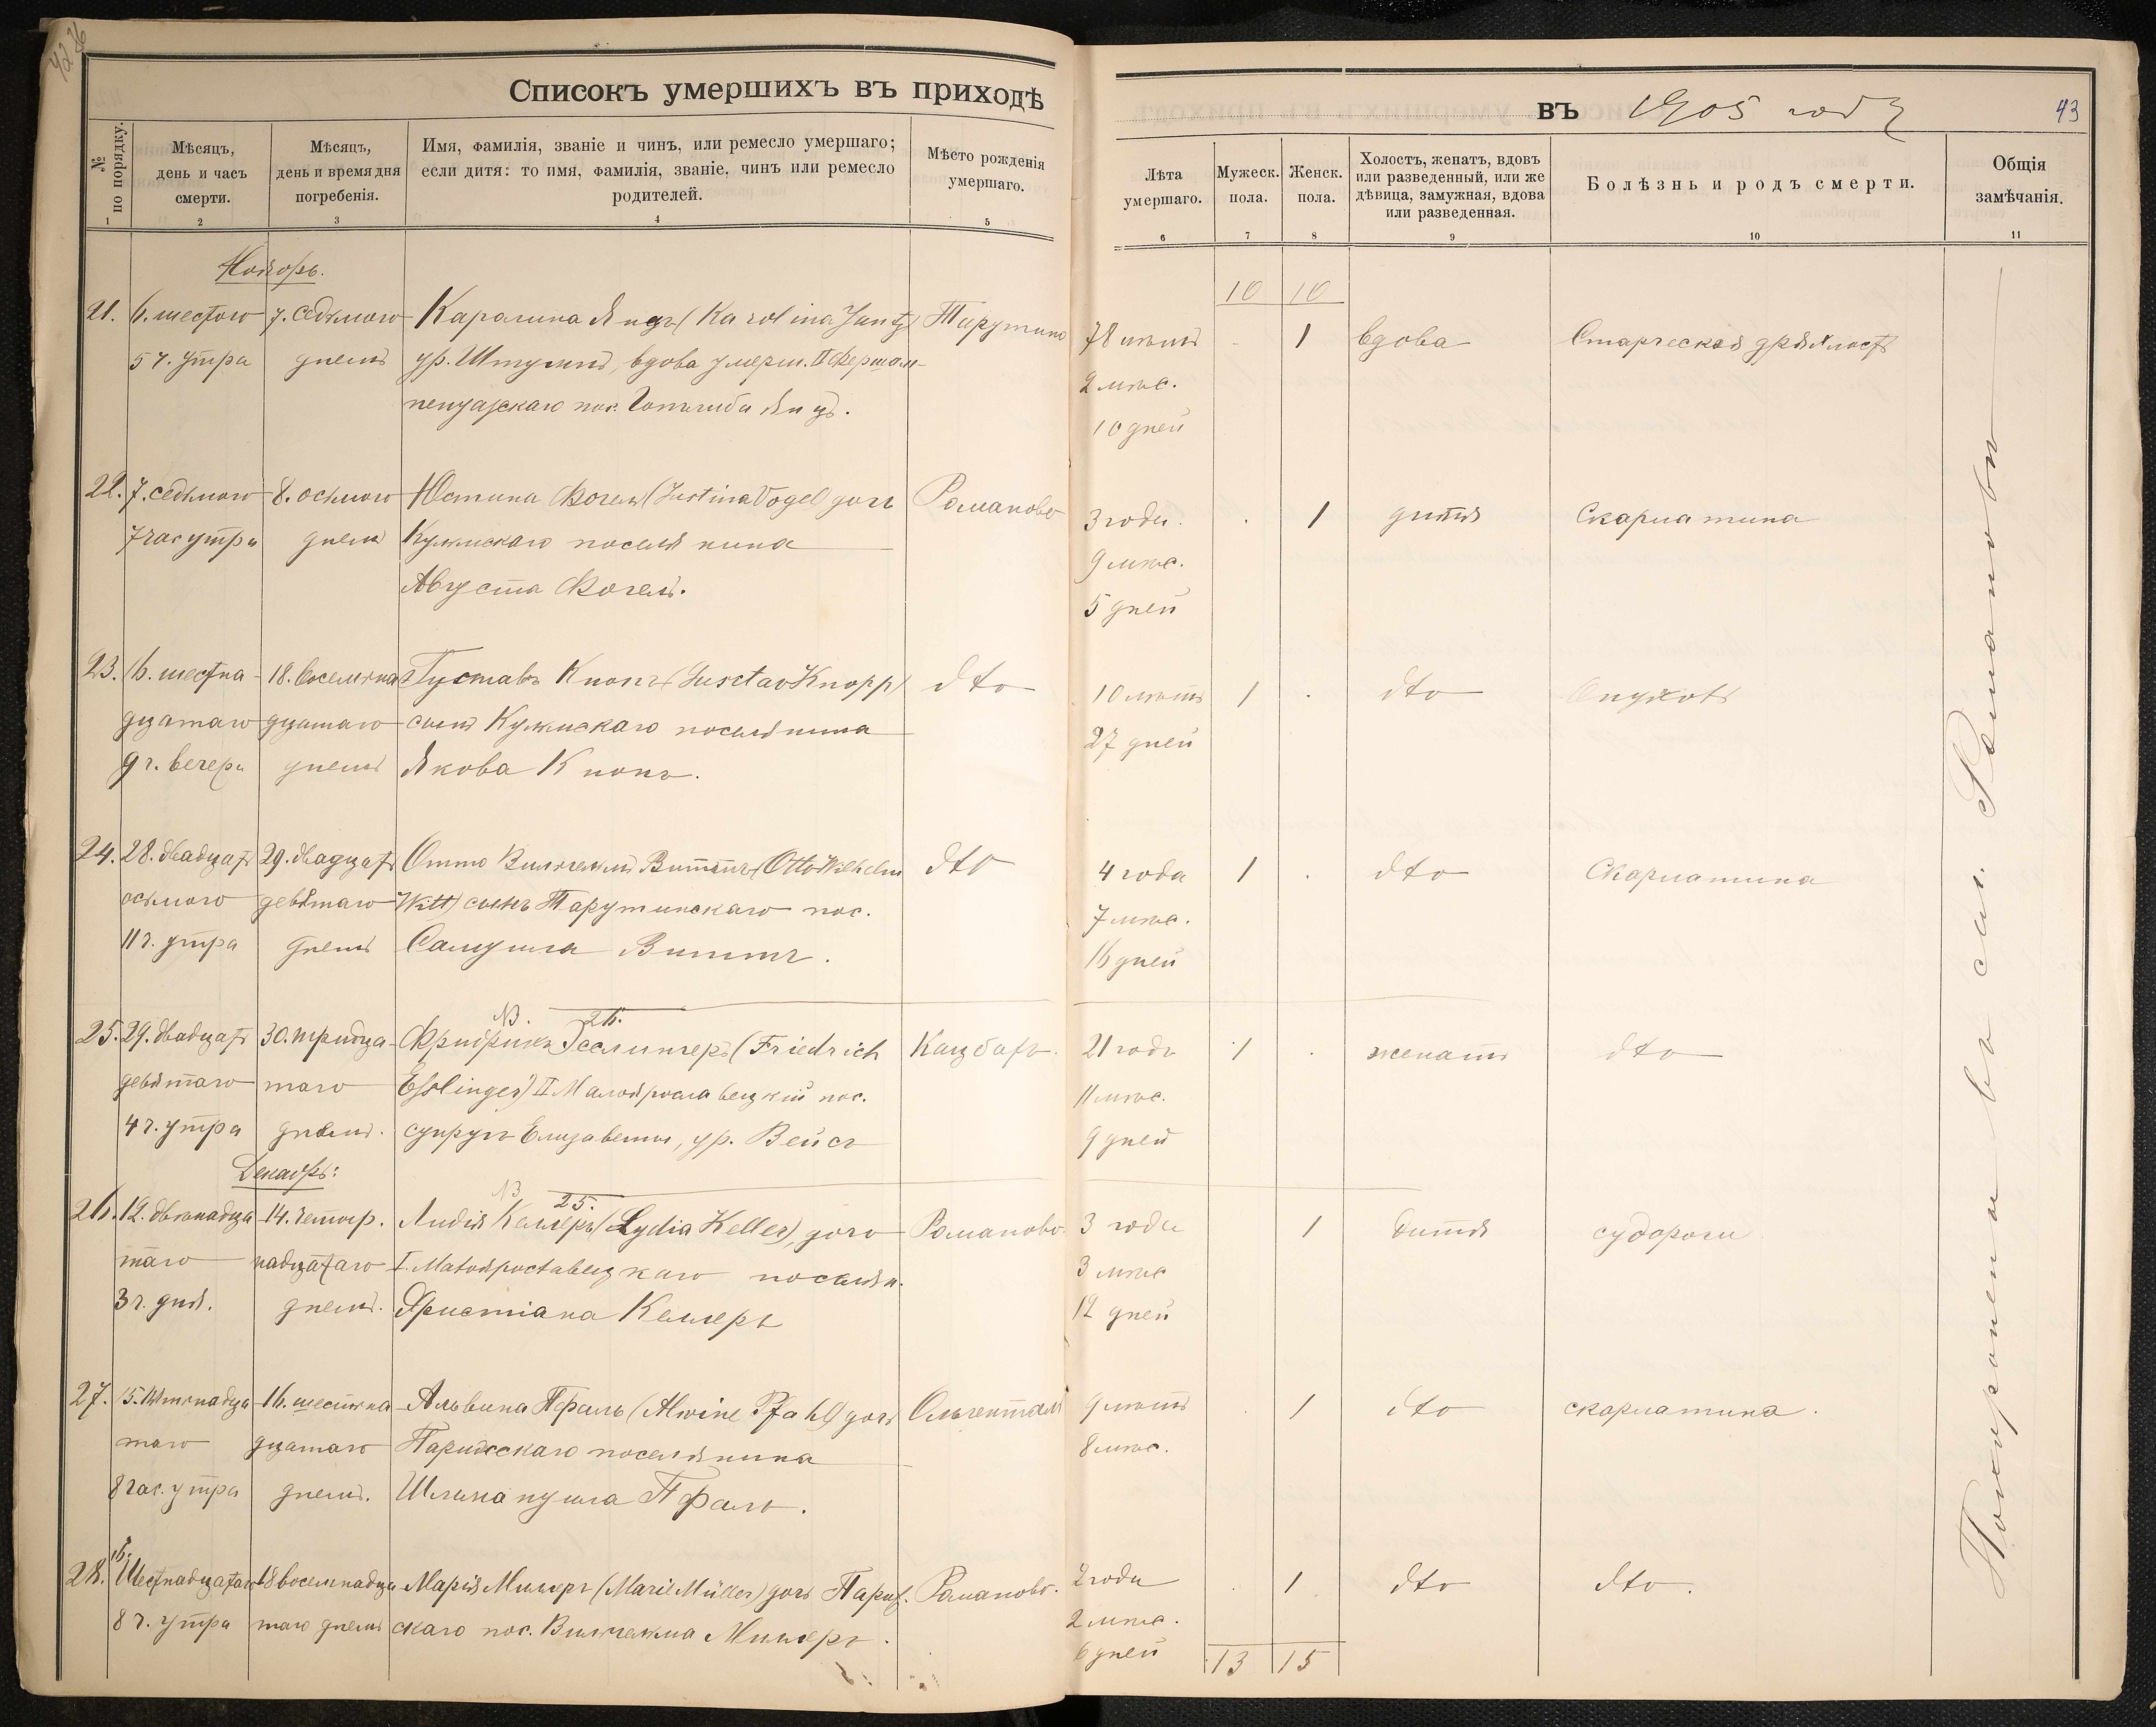 4226
Списокъ умершихъ въ приходѣ
въ 1905 году
43
№ по порядку.
Мѣсяцъ, день и часъ смерти.
Мѣсяцъ, день и время дня погребенія.
Имя, фамилія, званіе и чинъ, или ремесло умершаго; если дитя: то имя, фамилія, званіе, чинъ или ремесло родителей.
Мѣсто рожденія умершаго.
Лѣта умершаго.
Мужеск. пола.
Женск. пола.
Холостъ, женатъ, вдовъ или разведенный, или же дѣвица, замужная, вдова или разведенная.
Болѣзнь и родъ смерти.
Общія замѣчанія.
1 2 3 4 5 6 7 8 9 10 11
Ноябрь.
10 10
21. 6. шестого 7. седьмого Каролина Янцъ (Karolina Jantz) Тарутино 78 лѣтъ 1 вдова Старческая дряхлость
5 ч. утра днемъ ур. Штумпъ, вдова умерш. II Фершам- 2 мѣс.
пенуазскаго пос. Готлиба Янцъ. 10 дней
22. 7. седьмого 8. осьмого Юстина Фогель (Justina Vogel) дочь Романово 3 года. 1 дитя Скарлатина
7 час утра днемъ Кульмскаго поселянина 9 мѣс.
Августа Фогель. 5 дней
23. 16. шестна- 18. восемна Густавъ Кнопъ (Gusctav Knopp) dto 10 лѣтъ 1 dto Опухоль
дцатаго дцатаго сынъ Кульмскаго поселянина 27 дней
9 ч. вечера днемъ Якова Кнопъ.
24. 28. двадцать 29. двадцать Отто Вильгельмъ Виттъ (Otto Wilhelm dto 4 года 1 dto Скарлатина
осьмого девятаго Witt) сынъ Тарутинскаго пос. 7 мѣс.
11 ч. утра днемъ Самуила Виттъ. 16 дней
NB. 26.
25. 29. двадцать 30. тридца- Фридрихъ Эсслингеръ (Friedrich Кацбахъ. 21 годъ 1 женатъ dto
девятаго таго Esslinger) II Малоярославецкій пос. 11 мѣс.
4 ч. утра днемъ. супругъ Елизаветы, ур. Вейсъ 9 дней
Декабрь:
NB 25.
26. 12. двѣнадца 14. четыр. Лидія Келлеръ (Lydia Keller), дочь Романово. 3 года 1 дитя судороги
таго надцатаго I. Малоярославецкаго поселян. 3 мѣс
3 ч. дня. днемъ. Христіана Келлеръ 12 дней
27. 15. пятнадца 16. шестна Альвина Пфаль (Alwine Pfahl) дочь Ольгенталь 9 лѣтъ 1 dto скарлатина.
таго дцатаго Парижскаго поселянина 8 мѣс.
8 час. утра днемъ. Пфаль.
28. 16. Шестнадцатаго 18 восемнадца Марія Миллеръ (Marie Müller) дочь Париж. Романово. 2 года 1 dto dto.
8 ч. утра таго днемъ скаго пос. Вильгельма Миллеръ. 2 мѣс.
6 дней
13 15
Похоронены въ сел. Романовы